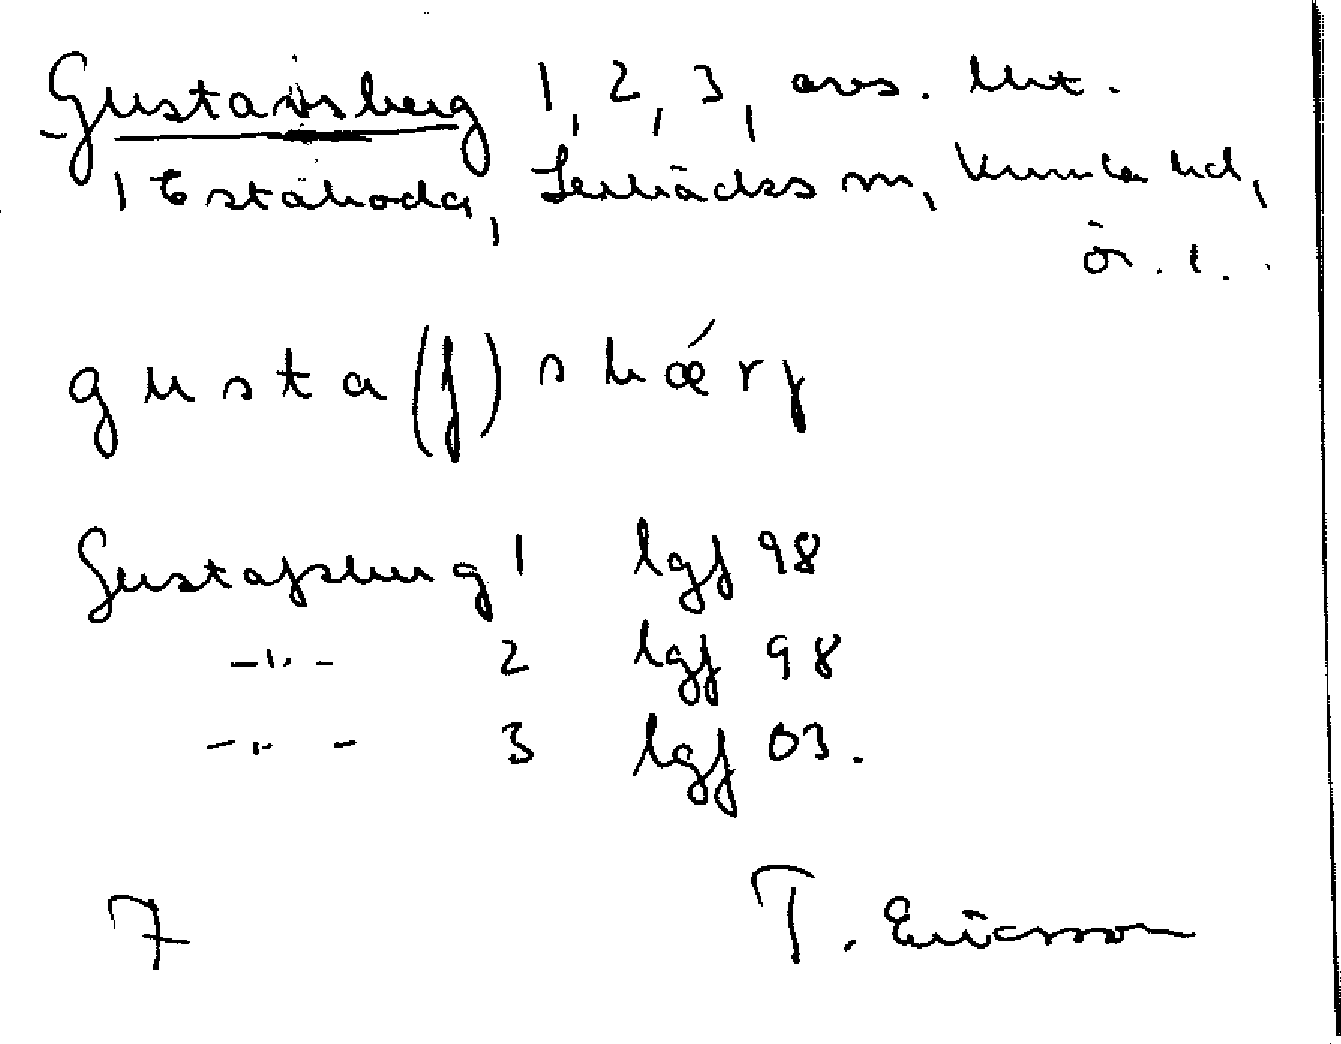 Gustavsberg 1, 2, 3, avs. lht.
1 Estaboda, Lerbäcks sn, Kumla hd,
ör. l.
gusta(f)sbǽrj
Gustafsberg 1 lgf 98
-"- 2 lgf 98
-"- 3 lgf 03.
7 T. Ericsson